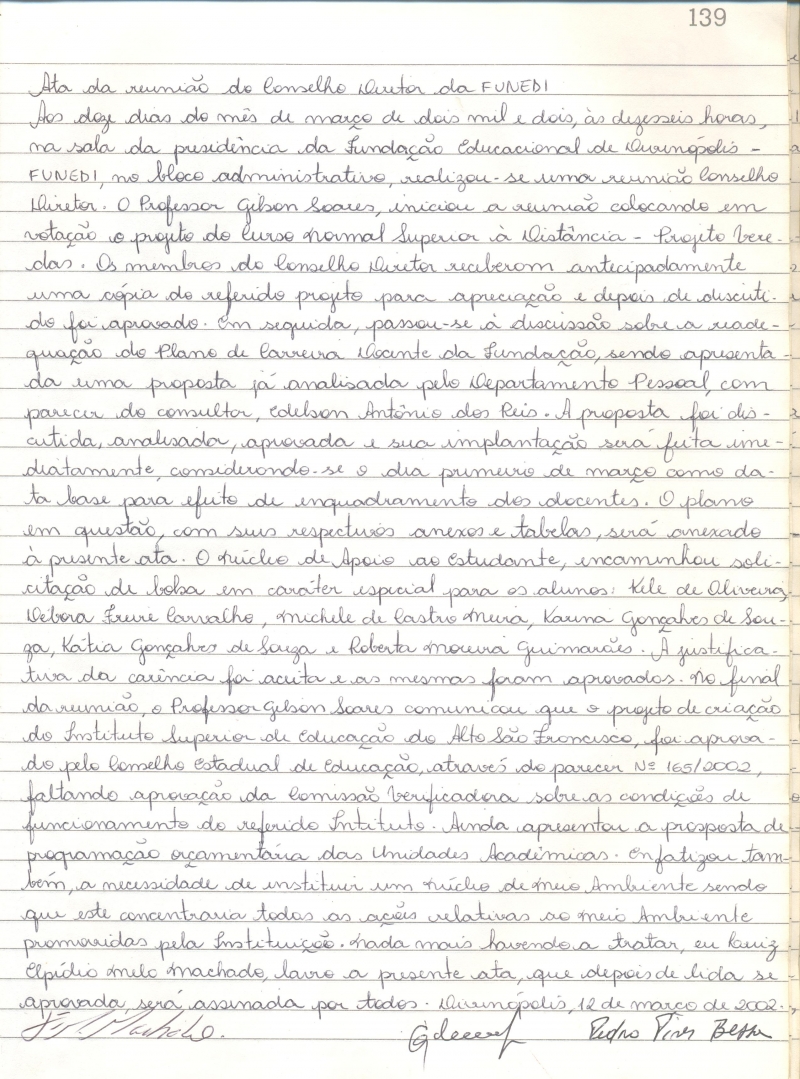 139
Ata da reunião do Conselho Diretor da FUNEDI
Aos doze dias do mês de março de dois mil e dois, às dezesseis horas,
na sala da presidência da Fundação Educacional de Divinópolis -
FUNEDI, no bloco administrativo, realizou-se uma reunião Conselho
Diretor. O Professor Gilson Soares, iniciou a reunião colocando em
votação o projeto do Curso Normal Superior à Distância - Projeto Vere-
das. Os membros do Conselho Diretor receberom antecipadamente
uma cópia do referido projeto para apreciação e depois de discuti-
do foi aprovado. Em seguida, passou-se à discussão sobre a reade-
quação do Plano de Carreira Docente da Fundação, sendo apresenta-
da uma proposta já analisada pelo Departamento Pessoal, com
parecer do consultor, Edelson Antônio dos Reis. A proposta foi dis-
cutida, analisada, aprovada e sua implantação será feita ime-
diatamente, considerondo-se o dia primeiro de março como da-
ta base para efeito de enquadramento dos docentes. O plano
em questão, com seus respectivos anexos e tabelas, será anexado
à presente ata. O Núcleo de Apoio ao Estudante, encaminhou soli-
citação de bolsa em caráter especial para os alunos: Kele de Oliveira,
Débora Freire Carvalho, Michele de Castro Meira, Karina Gonçalves de Sou-
za, Kátia Gonçalves de Souza e Roberta Moreira Guimarães. A justifica-
tiva da carência foi aceita e as mesmas foram aprovados. No final
da reunião, o Professor Gilson Soares comunicou que o projeto de criação
do Instituto Superior de Educação do Alto São Francisco, foi aprova-
do pelo Conselho Estadual de Educação, através do parecer Nº 165/2002,
faltando aprovação da Comissão Verificadora sobre as condições de
funcionamento do referido Intituto. Ainda apresentou a prosposta de
programação orçamentária das Unidades Acadêmicas. Enfatizou tam-
bém, a necessidade de instituir um Núcleo de Meio Ambiente sendo
que este concentraria todas as ações relativas ao Meio Ambiente
promovidas pela Instituição. Nada mais havendo a tratar, eu Luiz
Elpídio Melo Machado, lavro a presente ata, que depois de lida se
aprovada, será assinada por todos. Divinópolis, 12 de março de 2002.
Machado. Pedro Pires Bessa